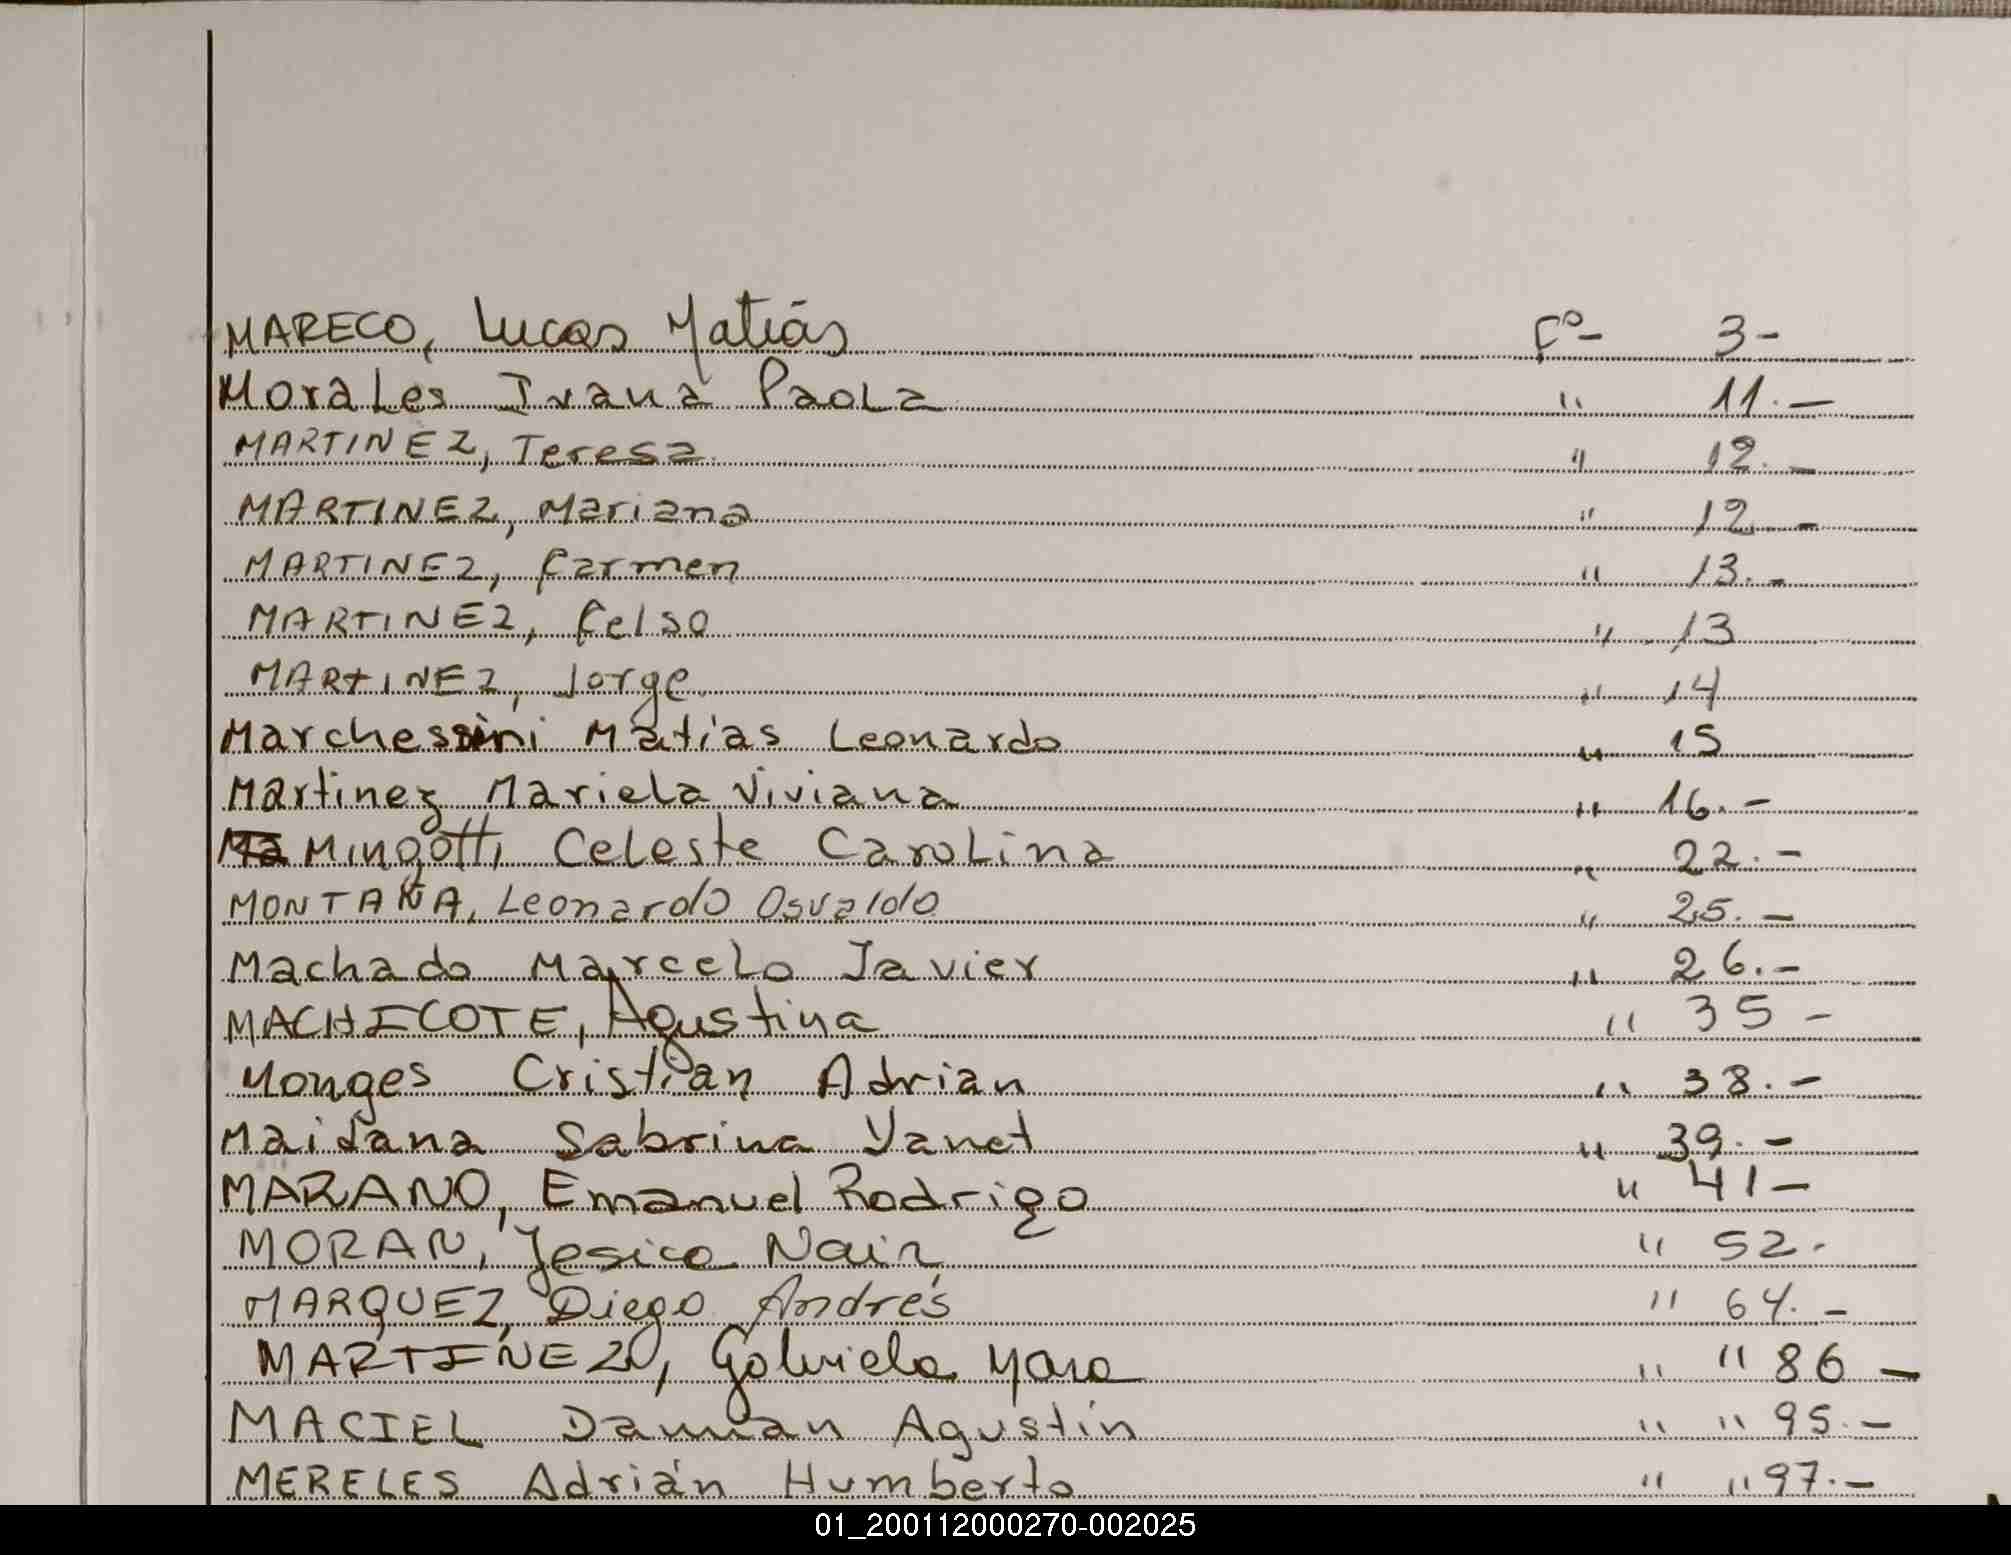 MARECO, Lucas Matías Fº- 3-
Morales Ivana Paola " 11.-
MARTINEZ, Teresa. " 12.-
MARTINEZ, Mariana " 12.-
MARTINEZ, Carmen " 13.-
MARTINEZ, Celso " 13
MARTINEZ, Jorge. " 14
Marchessini Matías Leonardo " 15
Martinez Mariela Viviana " 16.-
Ma Mingotti Celeste Carolina " 22.-
MONTAÑA, Leonardo Osvaldo " 25.-
Machado Marcelo Javier " 26.-
MACHICOTE, Agustina " 35-
Monges Cristian Adrian " 38.-
Maidana Sabrina Yanet " 39.-
MARANO, Emanuel Rodrigo " 41-
MORAN, Jesica Nair " 52.
MARQUEZ, Diego Andrés " 64.-
MARTINEZ, Gabriela Mara " " 86-
MACIEL Damian Agustín " " 95.-
MERELES Adrián Humberto " " 97.-
01_200112000270-002025